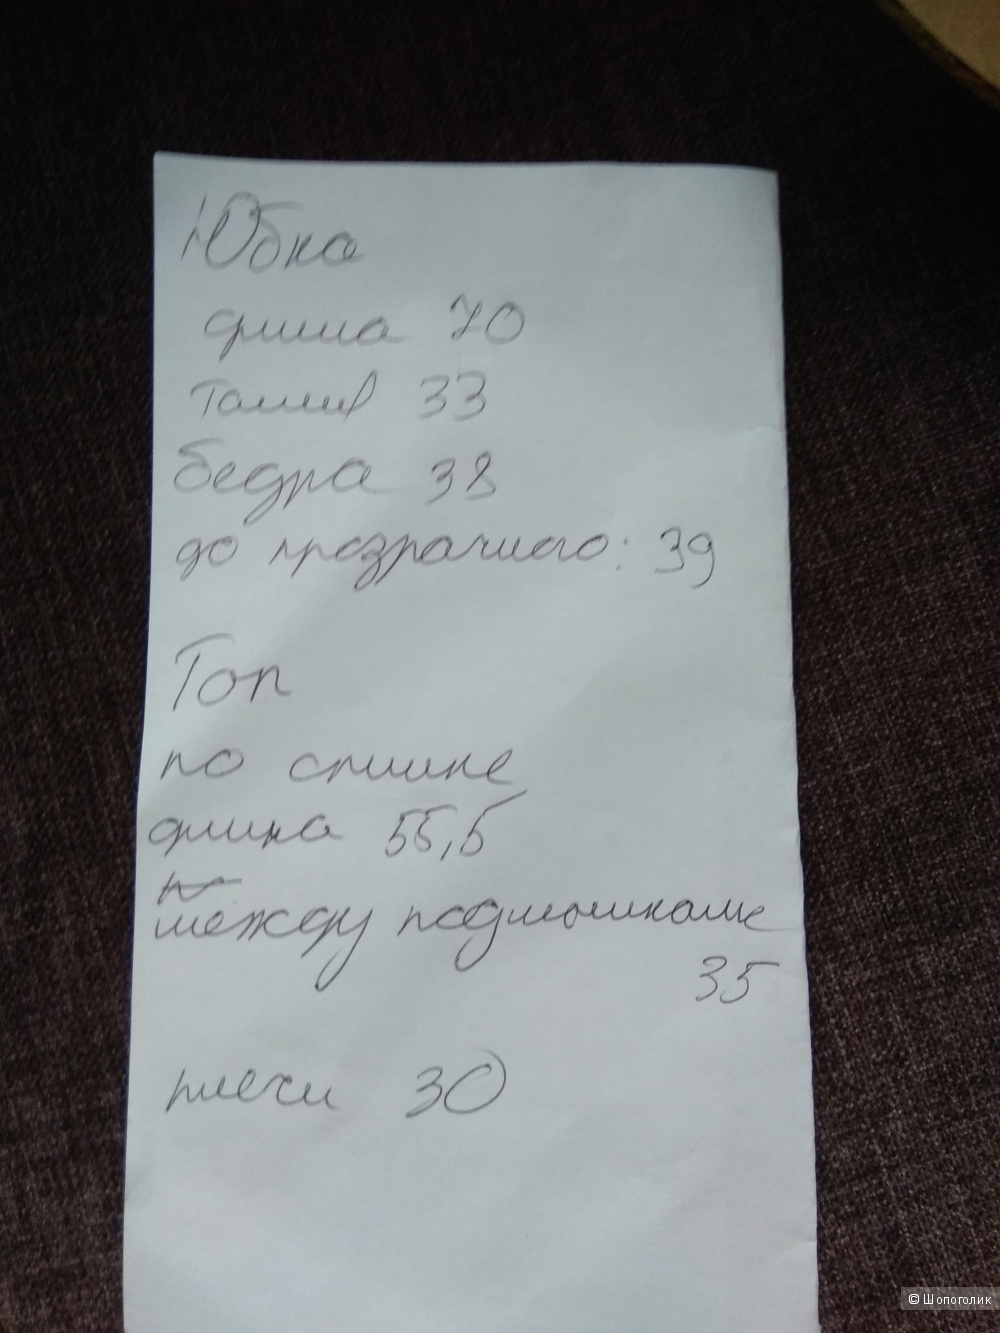 Юбка
длина 70
талия 33
бедра 38
до прозрачного: 39
Топ
по спинке
длина 55,5
между подмышками
35
плечи 30
© Шопоголик